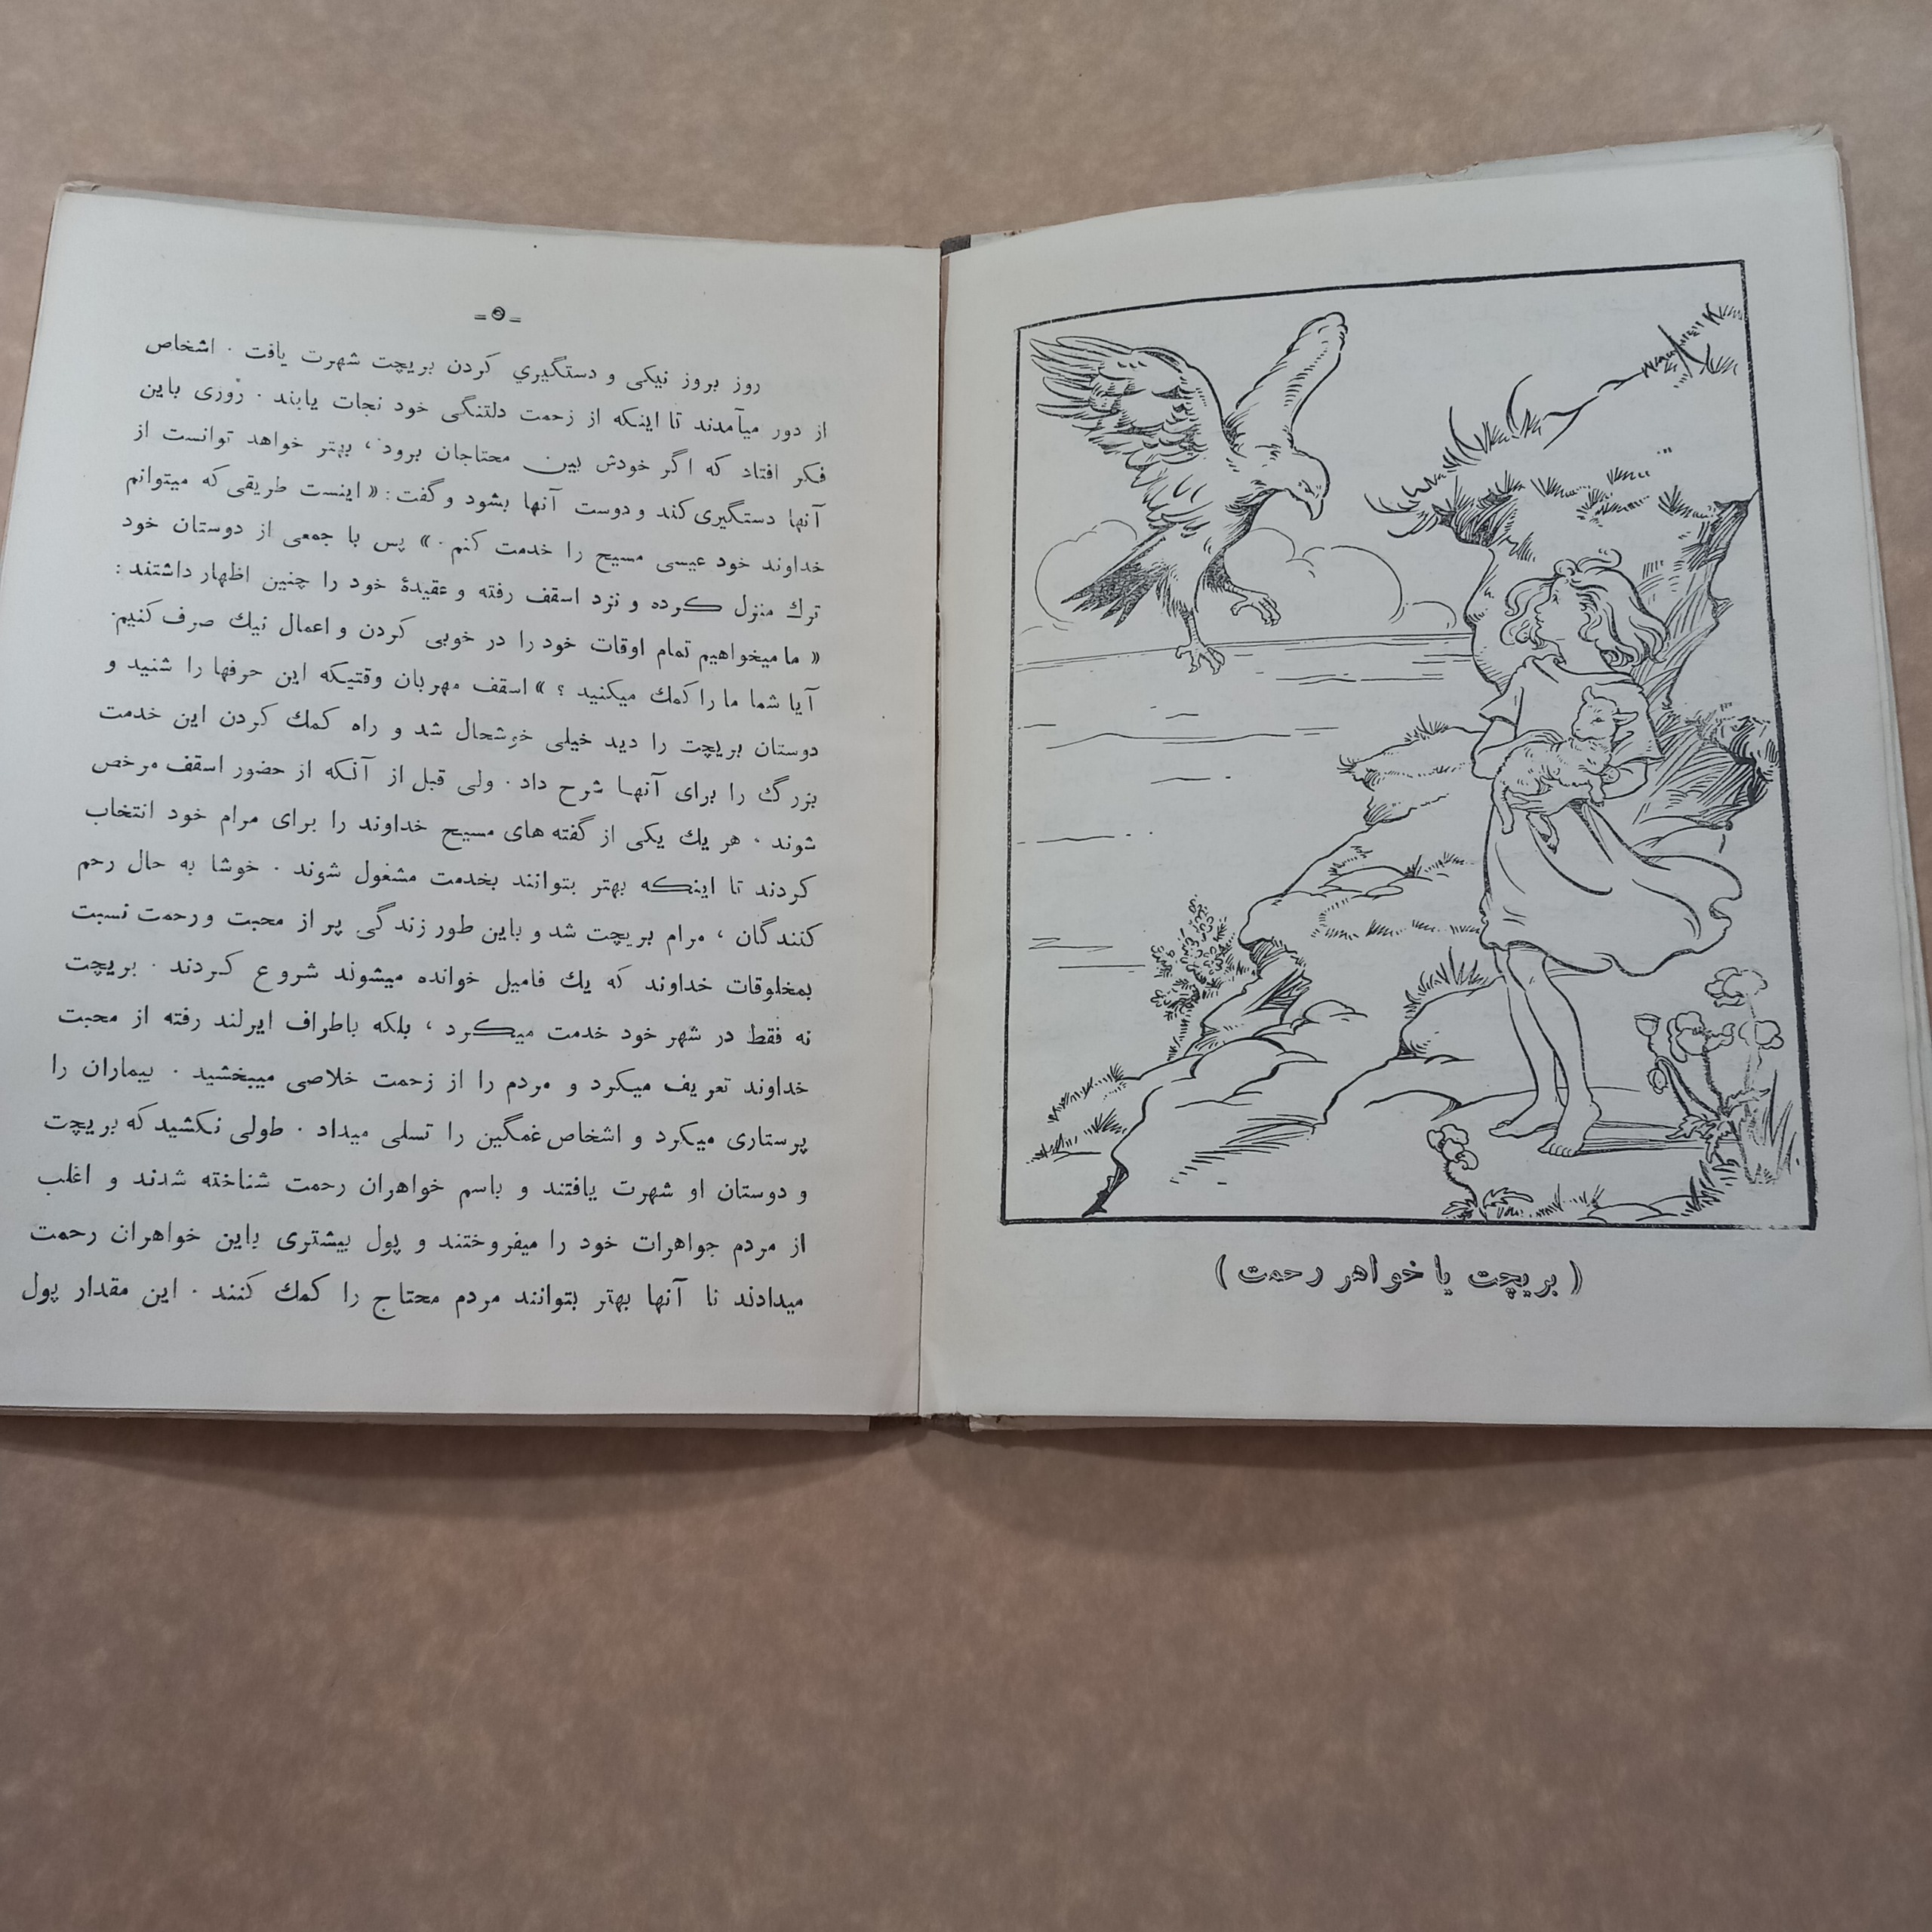 (بریچت یا خواهر رحمت)
ـ۵ـ
روز بروز نیکی و دستگیري کردن بریچت شهرت یافت . اشخاص
از دور میآمدند تا اینکه از زحمت دلتنگی خود نجات یابند . روزی باین
فکر افتاد که اگر خودش بین محتاجان برود ، بهتر خواهد توانست از
آنها دستگیری کند و دوست آنها بشود و گفت : « اینست طریقی که میتوانم
خداوند خود عیسی مسیح را خدمت کنم . » پس با جمعی از دوستان خود
ترك منزل کرده و نزد اسقف رفته و عقیدهٔ خود را چنین اظهار داشتند :
« ما میخواهیم تمام اوقات خود را در خوبی کردن و اعمال نیك صرف کنیم .
آیا شما ما را کمك میکنید ؟ » اسقف مهربان وقتیکه این حرفها را شنید و
دوستان بریچت را دید خیلی خوشحال شد و راه کمك کردن این خدمت
بزرگ را برای آنها شرح داد . ولی قبل از آنکه از حضور اسقف مرخص
شوند . هر یك یکی از گفته های مسیح خداوند را برای مرام خود انتخاب
کردند تا اینکه بهتر بتوانند بخدمت مشغول شوند . خوشا به حال رحم
کنندگان ، مرام بریچت شد و باین طور زندگی پر از محبت و رحمت نسبت
بمخلوقات خداوند که یك فامیل خوانده میشوند شروع کردند . بریچت
نه فقط در شهر خود خدمت میکرد ، بلکه باطراف ایرلند رفته از محبت
خداوند تعریف میکرد و مردم را از زحمت خلاصی میبخشید . بیماران را
پرستاری میکرد و اشخاص غمگین را تسلی میداد . طولی نکشید که بریچت
و دوستان او شهرت یافتند و باسم خواهران رحمت شناخته شدند و اغلب
از مردم جواهرات خود را میفروختند و پول بیشتری باین خواهران رحمت
میدادند تا آنها بهتر بتوانند مردم محتاج را کمك کنند . این مقدار پول